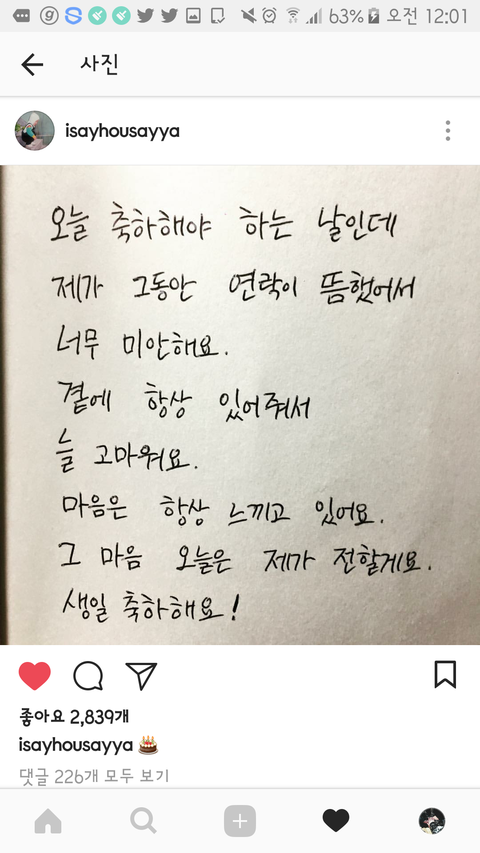 63% 오전 12:01
사진
isayhousayya
오늘 축하해야 하는 날인데
제가 그동안 연락이 뜸했어서
너무 미안해요.
곁에 항상 있어줘서
늘 고마워요.
마음은 항상 느끼고 있어요.
그 마음 오늘은 제가 전할게요.
생일 축하해요!
좋아요 2,839개
isayhousayya 🎂
댓글 226개 모두 보기